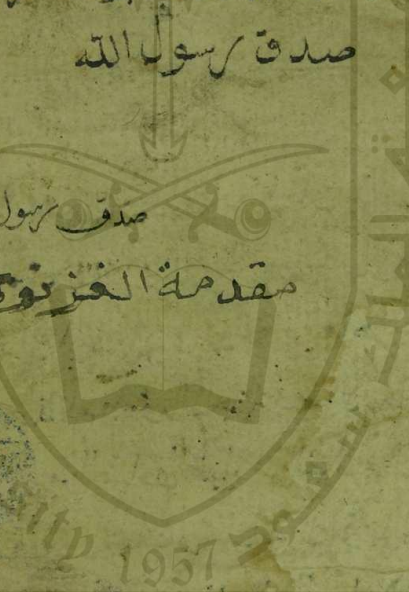 صدق رسول الله
صدق رسول
مقدمة الغزنوي
1957